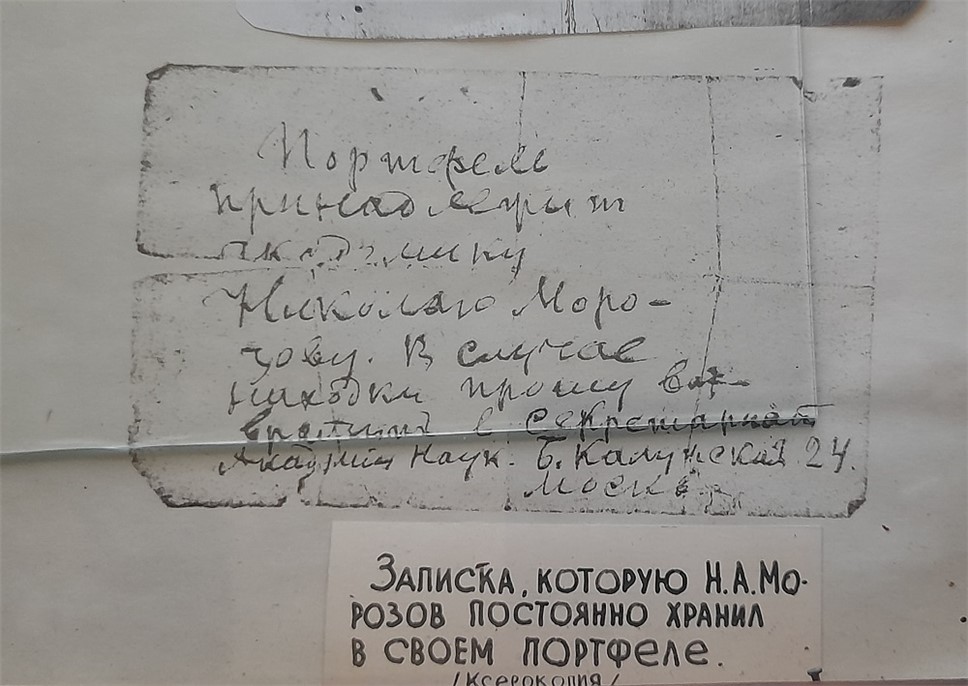 Портфель
принадлежит
академику
Николаю Моро-
зову. В случае
находки прошу воз-
вратить в Секретариат
Академии Наук. Б. Калужская 24.
Москва
Записка, которую Н.А.Мо-
розов постоянно хранил
в своем портфеле.
/Ксерокопия/